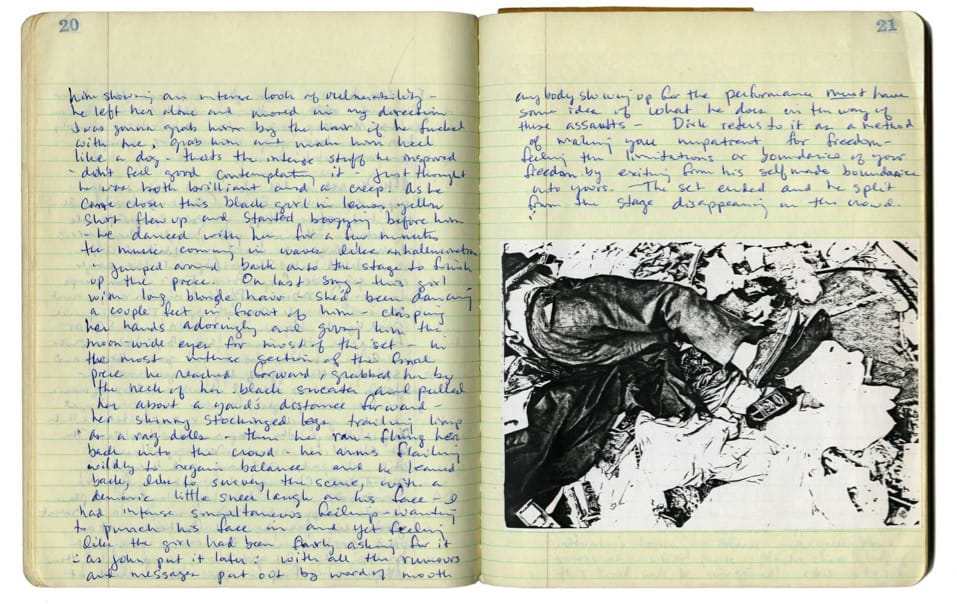 20
him showing an intense look of vulnerability -
he left her alone and moved in my direction
I was gonna grab him by the hair if he fucked
with me, grab him and make him heel
like a dog - thats the intense stuff he inspired
- didnt feel good contemplating it - just thought
he was both brilliant and a creep. As he
came closer this black girl in lemon yellow
shirt flew up and started boogying before him
- he danced with her for a few minutes
the music coming in waves like
- jumped around back onto the stage to finish
up the piece. On last song - this girl
with long blonde hair - she'd been dancing
a couple feet in front of him - clasping
her hands adoringly and giving him the
moon-wide eyes for most of the set - in
the most intense section of the final
piece he reached forward, grabbed her by
the neck of her black sweater and pulled
her about a yard's distance forward -
her skinny stockinged legs trailing limp
as a rag dolls - then he ran - flung her
back into the crowd - her arms flailing
wildly to regain balance and he leaned
back, like to survey the scene, with a
demonic little sneer laugh on his face - I
had intense simultaneous feelings - wanting
to punch his face in and yet feeling
like the girl had been fairly asking for it
: as John put it later: with all the rumours
and messages put out by word of mouth
21
anybody showing up for the performance must have
some idea of what he does in the way of
these assaults - Dirk refers to it as a method
of making you impatient for freedom -
feeling the limitations or boundaries of your
freedom by exiting from his selfmade boundaries
into yours. - The set ended and he split
from the stage disappearing in the crowd.